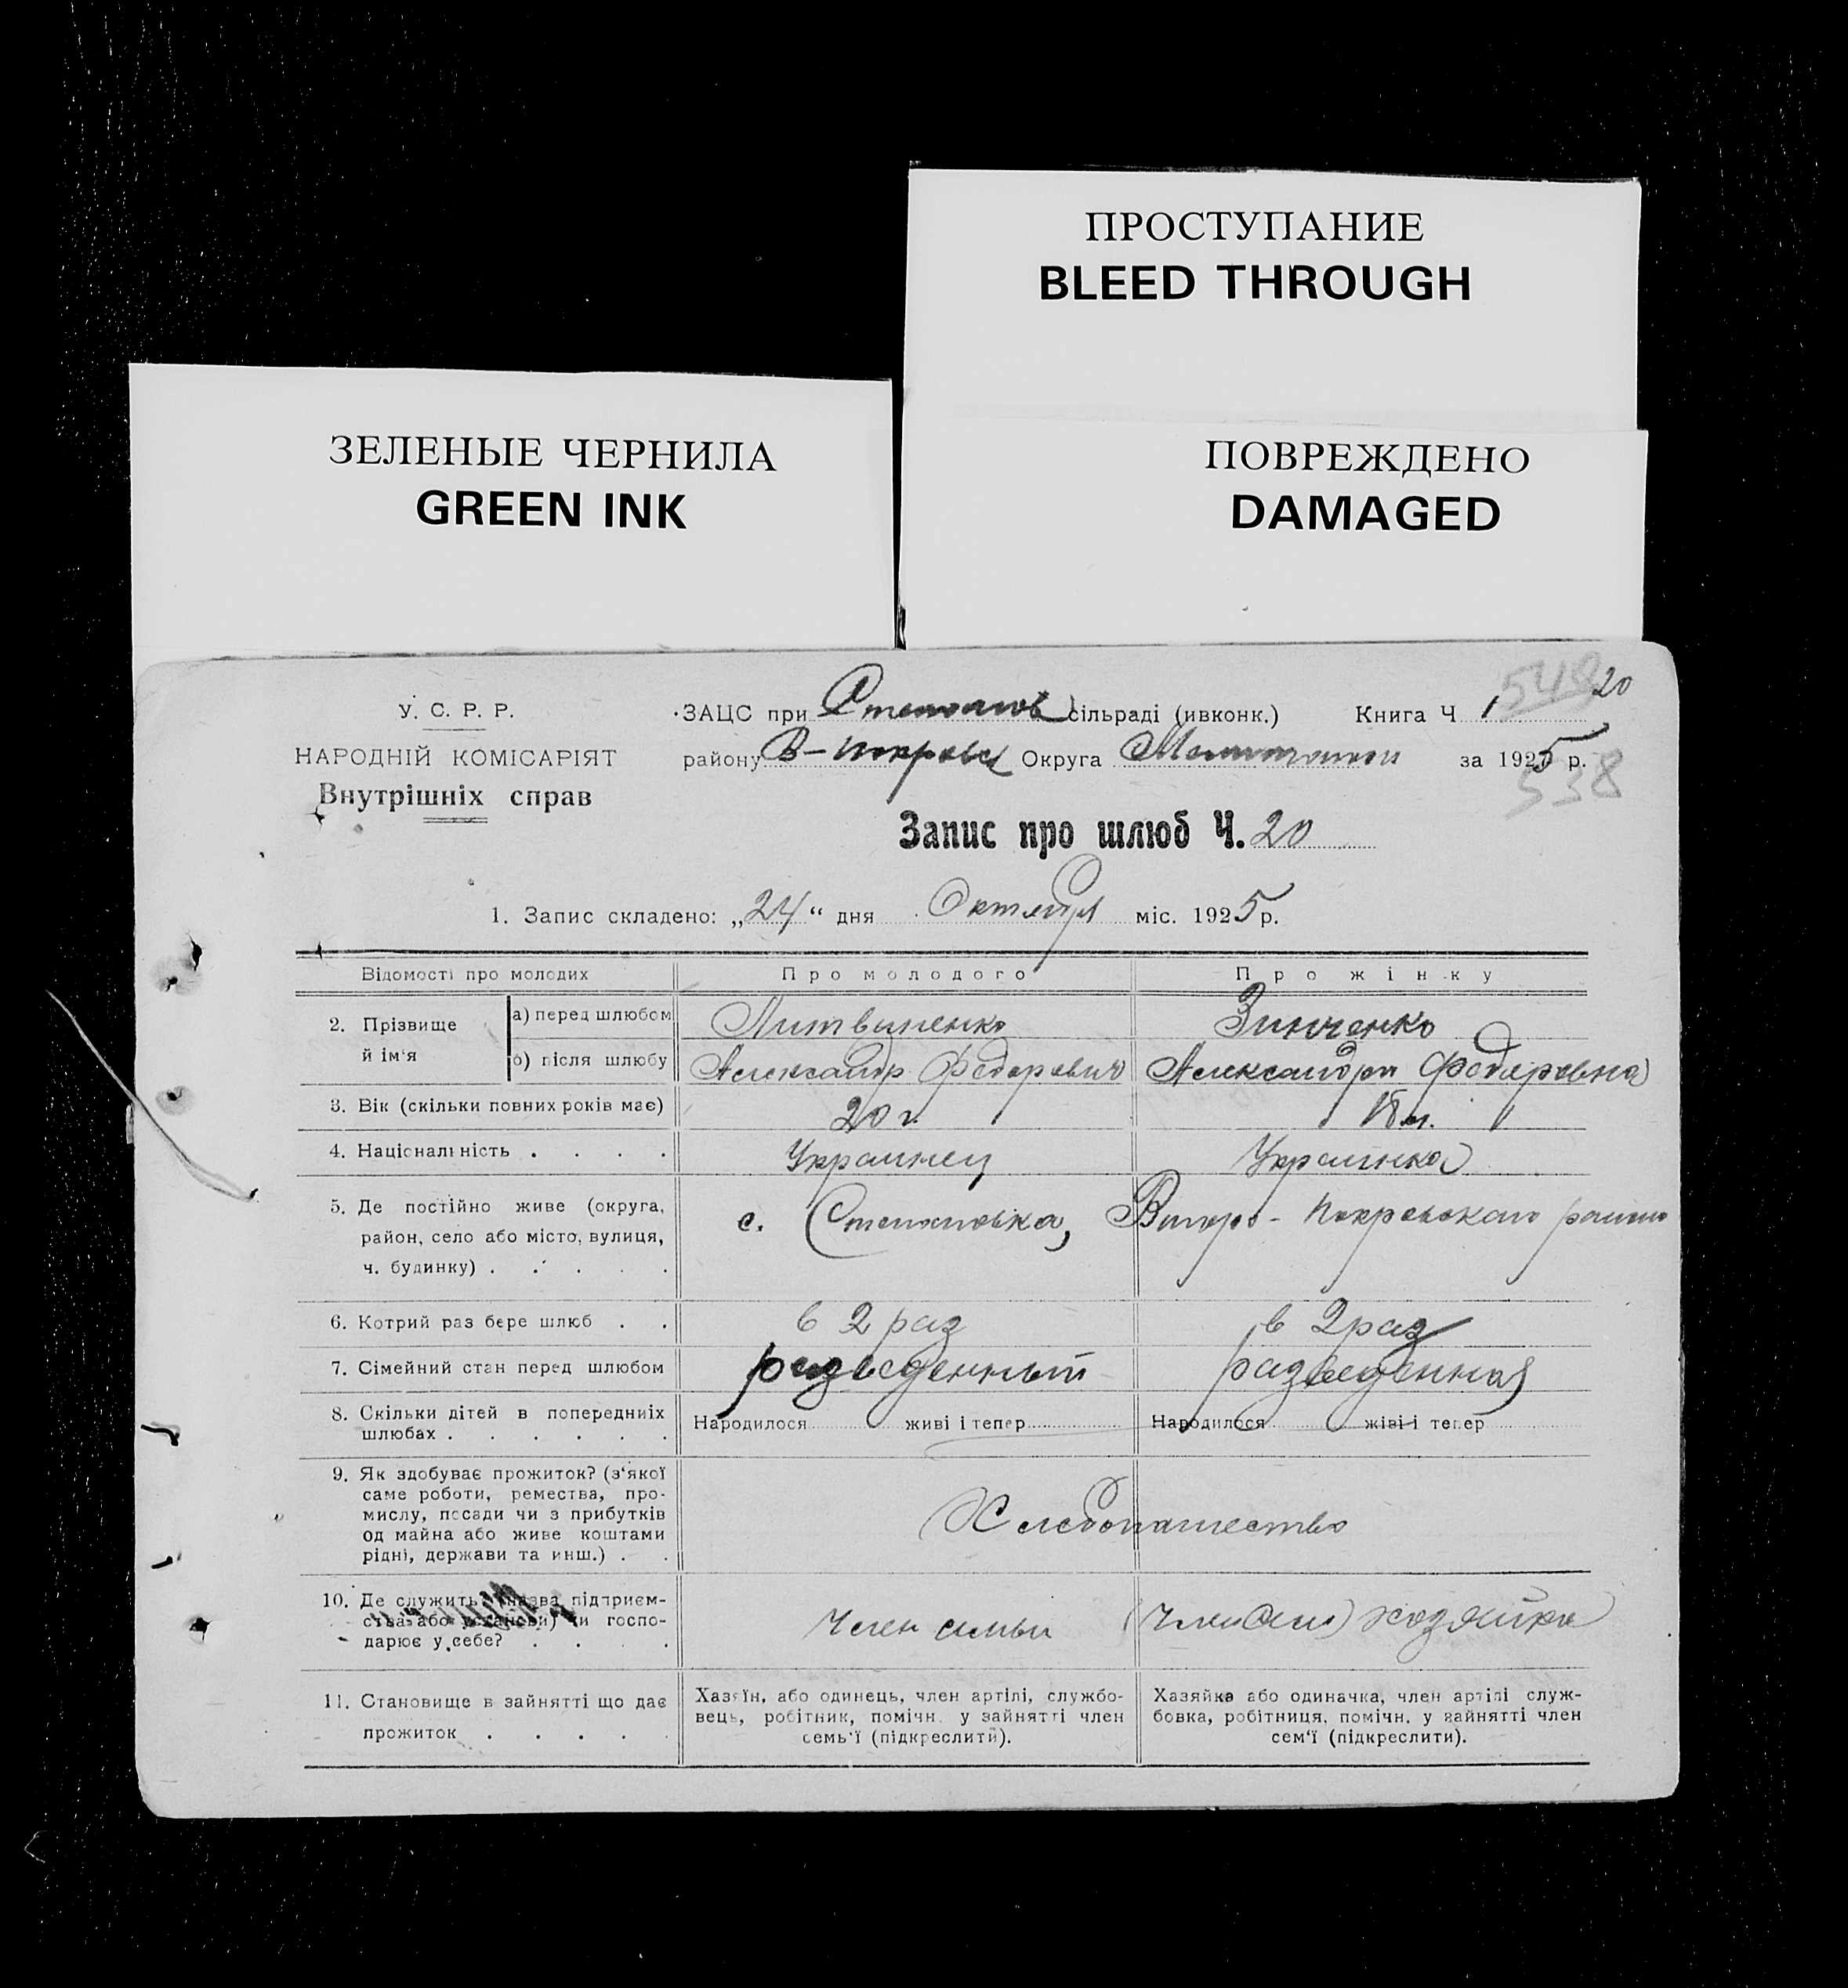 ПРОСТУПАНИЕ
BLEED THROUGH
ЗЕЛЕНЫЕ ЧЕРНИЛА
GREEN INK
ПОВРЕЖДЕНО
DAMAGED
548 20
У. С. Р. Р.
НАРОДНІЙ КОМІСАРІЯТ
Внутрішніх справ
ЗАЦС при Степанов сільраді (ивконк.) Книга Ч 1
району В-Покровск Округа за 1925 р.
538
Запис про шлюб Ч. 20
1. Запис складено: „24“ дня Октября міс. 1925 р.
Відомості про молодих Про молодого Про жінку
2. Прізвище й ім'я
а) перед шлюбом Литвиненко Зинченко
б) після шлюбу Александр Федорович Александра Федоровна
3. Вік (скільки повних років має) 20 г. 18 л.
4. Національність . . . . Украинец Украинка
5. Де постійно живе (округа, с. Степановка, Второ-Покровского района
район, село або місто, вулиця,
ч. будинку) . . . . .
6. Котрий раз бере шлюб . . в 2 раз в 2 раз
7. Сімейний стан перед шлюбом разведенный разведенная
8. Скільки дітей в попередниіх Народилося живі і тепер Народилося живі і тепер
шлюбах . . . . . .
9. Як здобуває прожиток? (з'якої
саме роботи, ремества, про-
мислу, посади чи з прибутків Хлебопашество
од майна або живе коштами
рідні, держави та инш.) . .
10. Де служить (назва підприєм-
ства або установи) чи госпо- Член семьи хозяйка
дарює у себе? . . . .
11. Становище в зайнятті що дає
прожиток . . . . .
Хазяїн, або одинець, член артілі, службо-
вець, робітник, помічн. у зайнятті член
семь'ї (підкреслити).
Хазяйка або одиначка, член артілі служ-
бовка, робітниця, помічн. у зайнятті член
сем'ї (підкреслити).